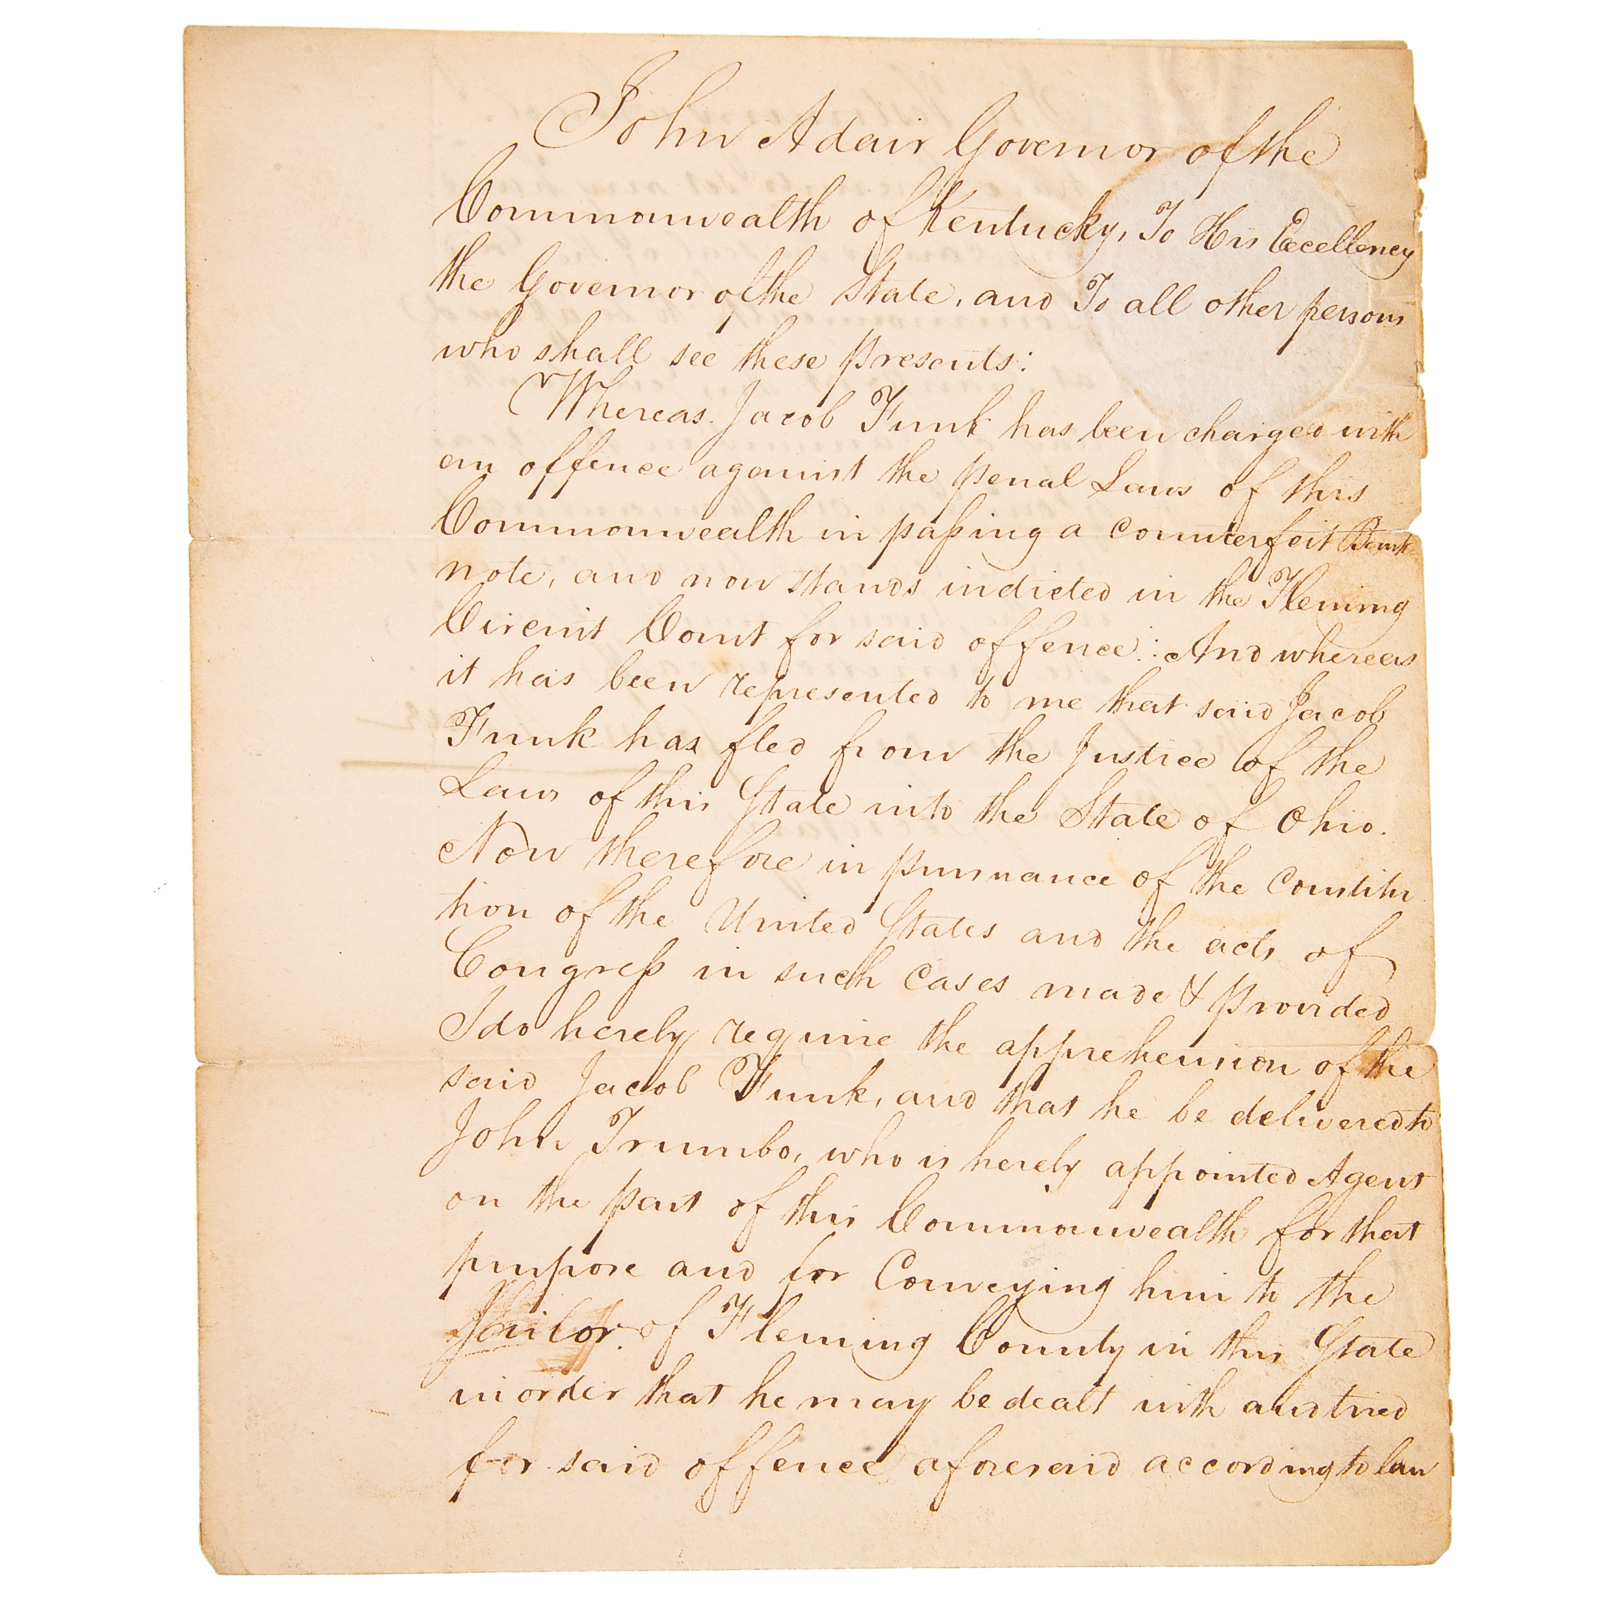 John Adair Governor of the
Commonwealth of Kentucky, To His Excellency
the Governor of the State, and To all other persons
who shall see these presents:
Whereas Jacob Funk has been charged with
an offence against the penal Laws of this
Commonwealth in paſsing a counterfeit Bank
note, and now stands indicted in the Fleming
Circuit Court for said offence: And whereas
it has been represented to me that said Jacob
Funk has fled from the Justice of the
Laws of this State into the State of Ohio.
Now therefore in pursuance of the Constitu
tion of the United States and the acts of
Congreſs in such cases made & provided
I do hereby require the apprehension of the
said Jacob Funk, and that he be delivered to
John Trumbo, who is hereby appointed Agent
on the part of this Commonwealth for that
purpose and for Conveying him to the
Jailor of Fleming County in this State
in order that he may be dealt with and tried
for said offence aforesaid according to law